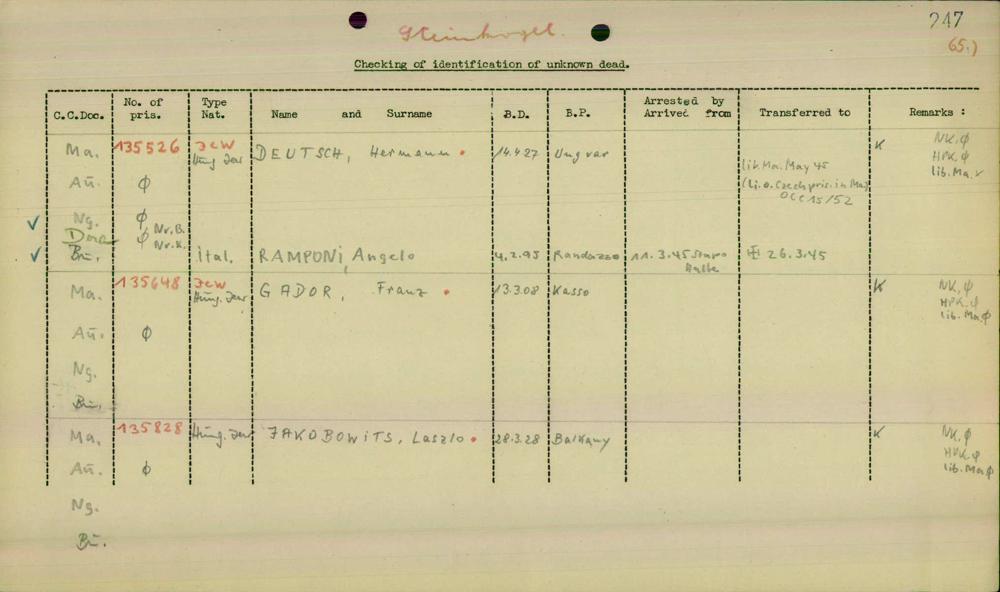 247
Steinkogel.
65.)
Checking of identification of unknown dead.
C.C.Doc. No. of pris. Type Nat. Name and Surname B.D. B.P. Arrested by Arrived from Transferred to Remarks :
Ma. 135526 Jew Hung. Jew DEUTSCH, Hermann. 14.4.27 Ungvar K NK, φ
HPK, φ
lib. Ma. May 45 lib. Ma. v
Au. φ (Li. o. Czech pris. in Ma)
OCC 15/52
Ng. φ Nr. B.
Dora φ Nr. K.
Bu. Ital. RAMPONI, Angelo 4.2.95 Randazzo 11.3.45 26.3.45
Ma. 135648 Jew Hung. Jew GADOR, Franz. 13.3.08 Kasso K NK, φ
HPK. φ
lib. Ma φ
Au. φ
Ng.
Bu.
Ma. 135828 Hung. Jew JAKOBOWITS, Laszlo. 28.3.28 Balkany K NK, φ
HPK φ
Au. φ lib. Ma φ
Ng.
Bu.